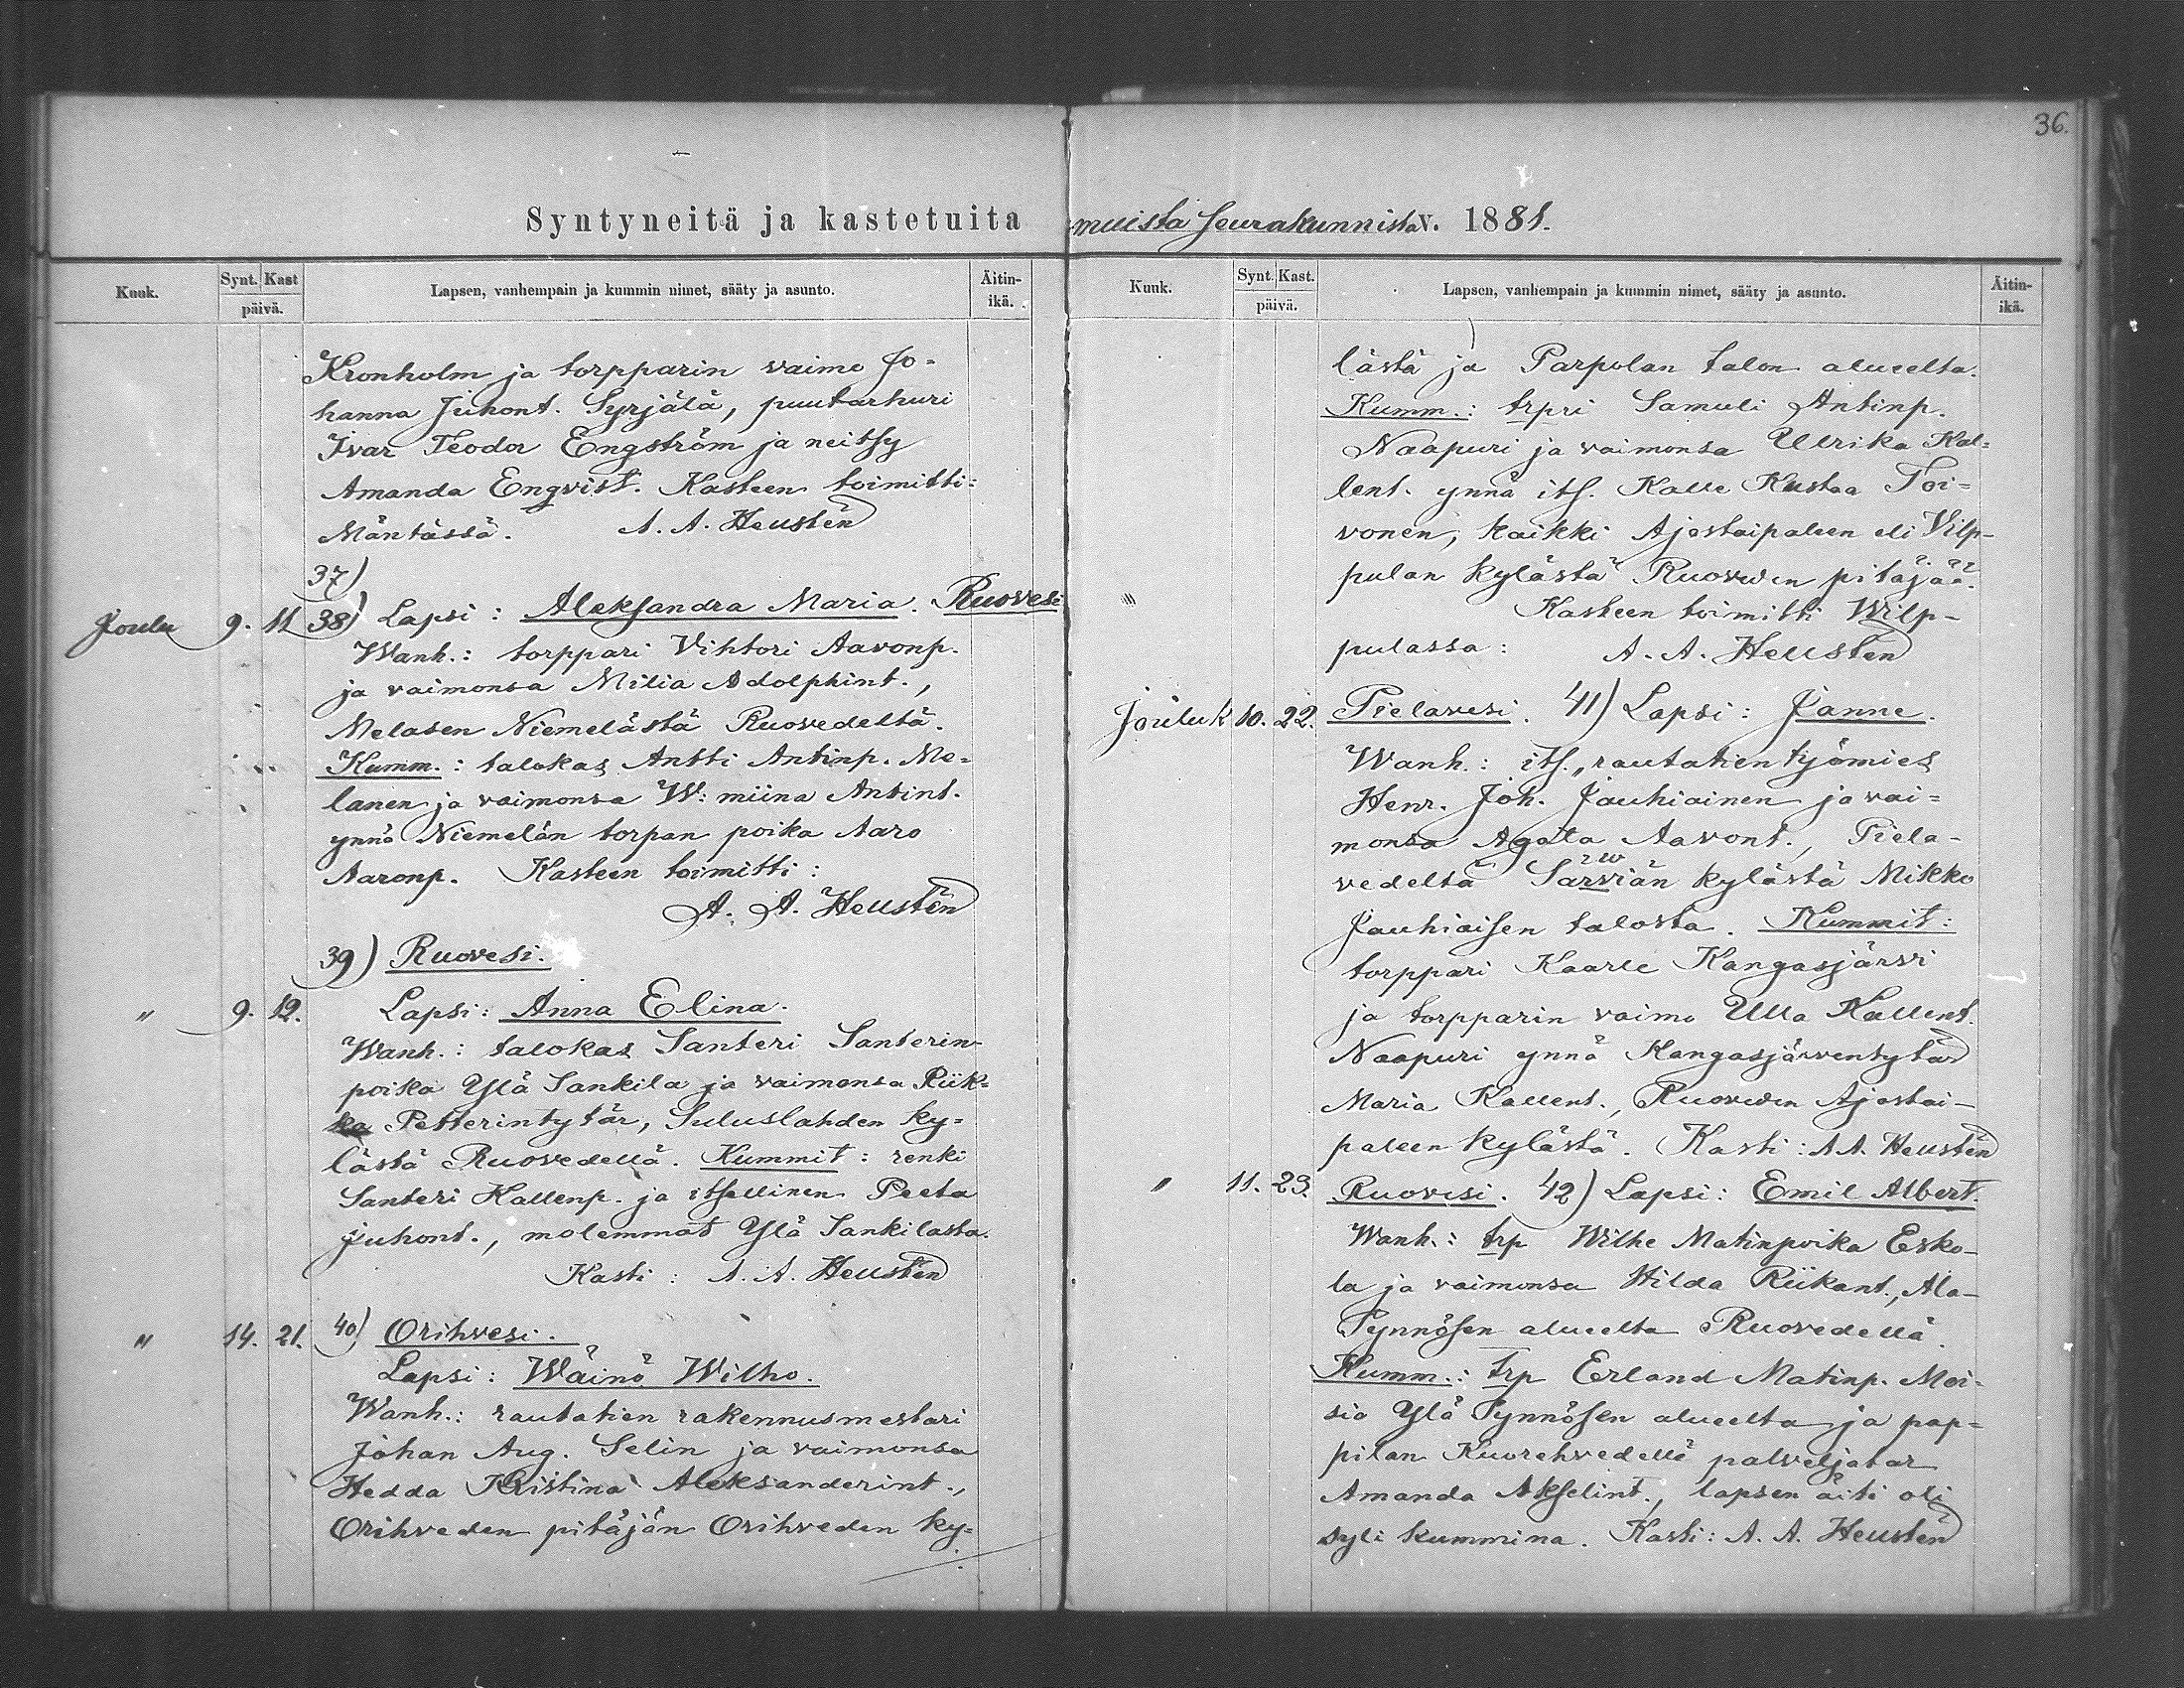 36.
Syntyneitä ja kastetuita muista seurakunnista v. 1881.
Kuuk.
Synt. Kast
päivä.
Lapsen, vanhempain ja kummin nimet, sääty ja asunto.
Äitin-
ikä.
Kronholm ja torpparin vaimo Jo-
hanna Juhont. Syrjälä, puutarhuri
Ivar Teodor Engström ja neitsy
Amanda Engvist. Kasteen toimitti:
Mäntässä. A. A. Heustén
37)
Joulu 9. 11 38) Lapsi: Aleksandra Maria. Ruovesi
Wanh.: torppari Vihtori Aavonp.
ja vaimonsa Milia Adolphint.,
Melasen Niemelästä Ruovedeltä.
Kumm.: talokas Antti Antinp. Me-
lanen ja vaimonsa W:miina Antint.
ynnä Niemelän torpan poika Aaro
Aaronp. Kasteen toimitti:
A. A. Heustén
39) Ruovesi.
" 9. 12. Lapsi: Anna Elina.
Wanh.: talokas Santeri Santerin-
poika Ylä Sankila ja vaimonsa Riik-
ka Petterintytär, Suluslahden ky-
lästä Ruovedellä. Kummit: renki
Santeri Kallenp. ja itsellinen Peeta
Juhont., molemmat Ylä Sankilasta.
Kasti: A. A. Heustén
" 14. 21. 40) Orihvesi.
Lapsi: Wäinö Wilho.
Wanh.: rautatien rakennusmestari
Johan Aug. Selin ja vaimonsa
Hedda Kristina Aleksanderint.,
Orihveden pitäjän Orihveden ky-
Kuuk.
Synt. Kast.
päivä.
Lapsen, vanhempain ja kummin nimet, sääty ja asunto.
Äitin-
ikä.
lästä ja Parpolan talon alueelta.
Kumm.: trpri Samuli Antinp.
Naapuri ja vaimonsa Ulrika Kal-
lent. ynnä its. Kalle Kustaa Toi-
vonen, kaikki Ajostaipaleen eli Vilp-
pulan kylästä Ruoveden pitäjää.
Kasteen toimitti Wilp-
pulassa: A. A. Heustén
Jouluk 10. 22. Pielavesi. 41) Lapsi: Janne.
Wanh.: its., rautatien työmies
Henr. Joh. Jauhiainen ja vai-
monsa Agata Aavont., Piela-
vedeltä Särviän kylästä Mikko
w
Jauhiaisen talosta. Kummit:
torppari Kaarle Kangasjärvi
ja torpparin vaimo Ulla Kallent.
Naapuri ynnä Kangasjärventytär
Maria Kallent., Ruoveden Ajostai-
paleen kylästä. Kasti: A. A. Heustén
" 11. 23. Ruovesi. 42) Lapsi: Emil Albert.
Wanh.: trp Wilhe Matinpoika Esko-
la ja vaimonsa Hilda Riikant., Ala-
Pynnösen alueelta Ruovedellä.
Kumm.: trp Erland Matinp. Moi-
sio Ylä Pynnösen alueelta ja pap-
pilan Kuorehvedellä palveljatar
Amanda Akselint., lapsen äiti oli
syli kummina. Kasti: A. A. Heustén